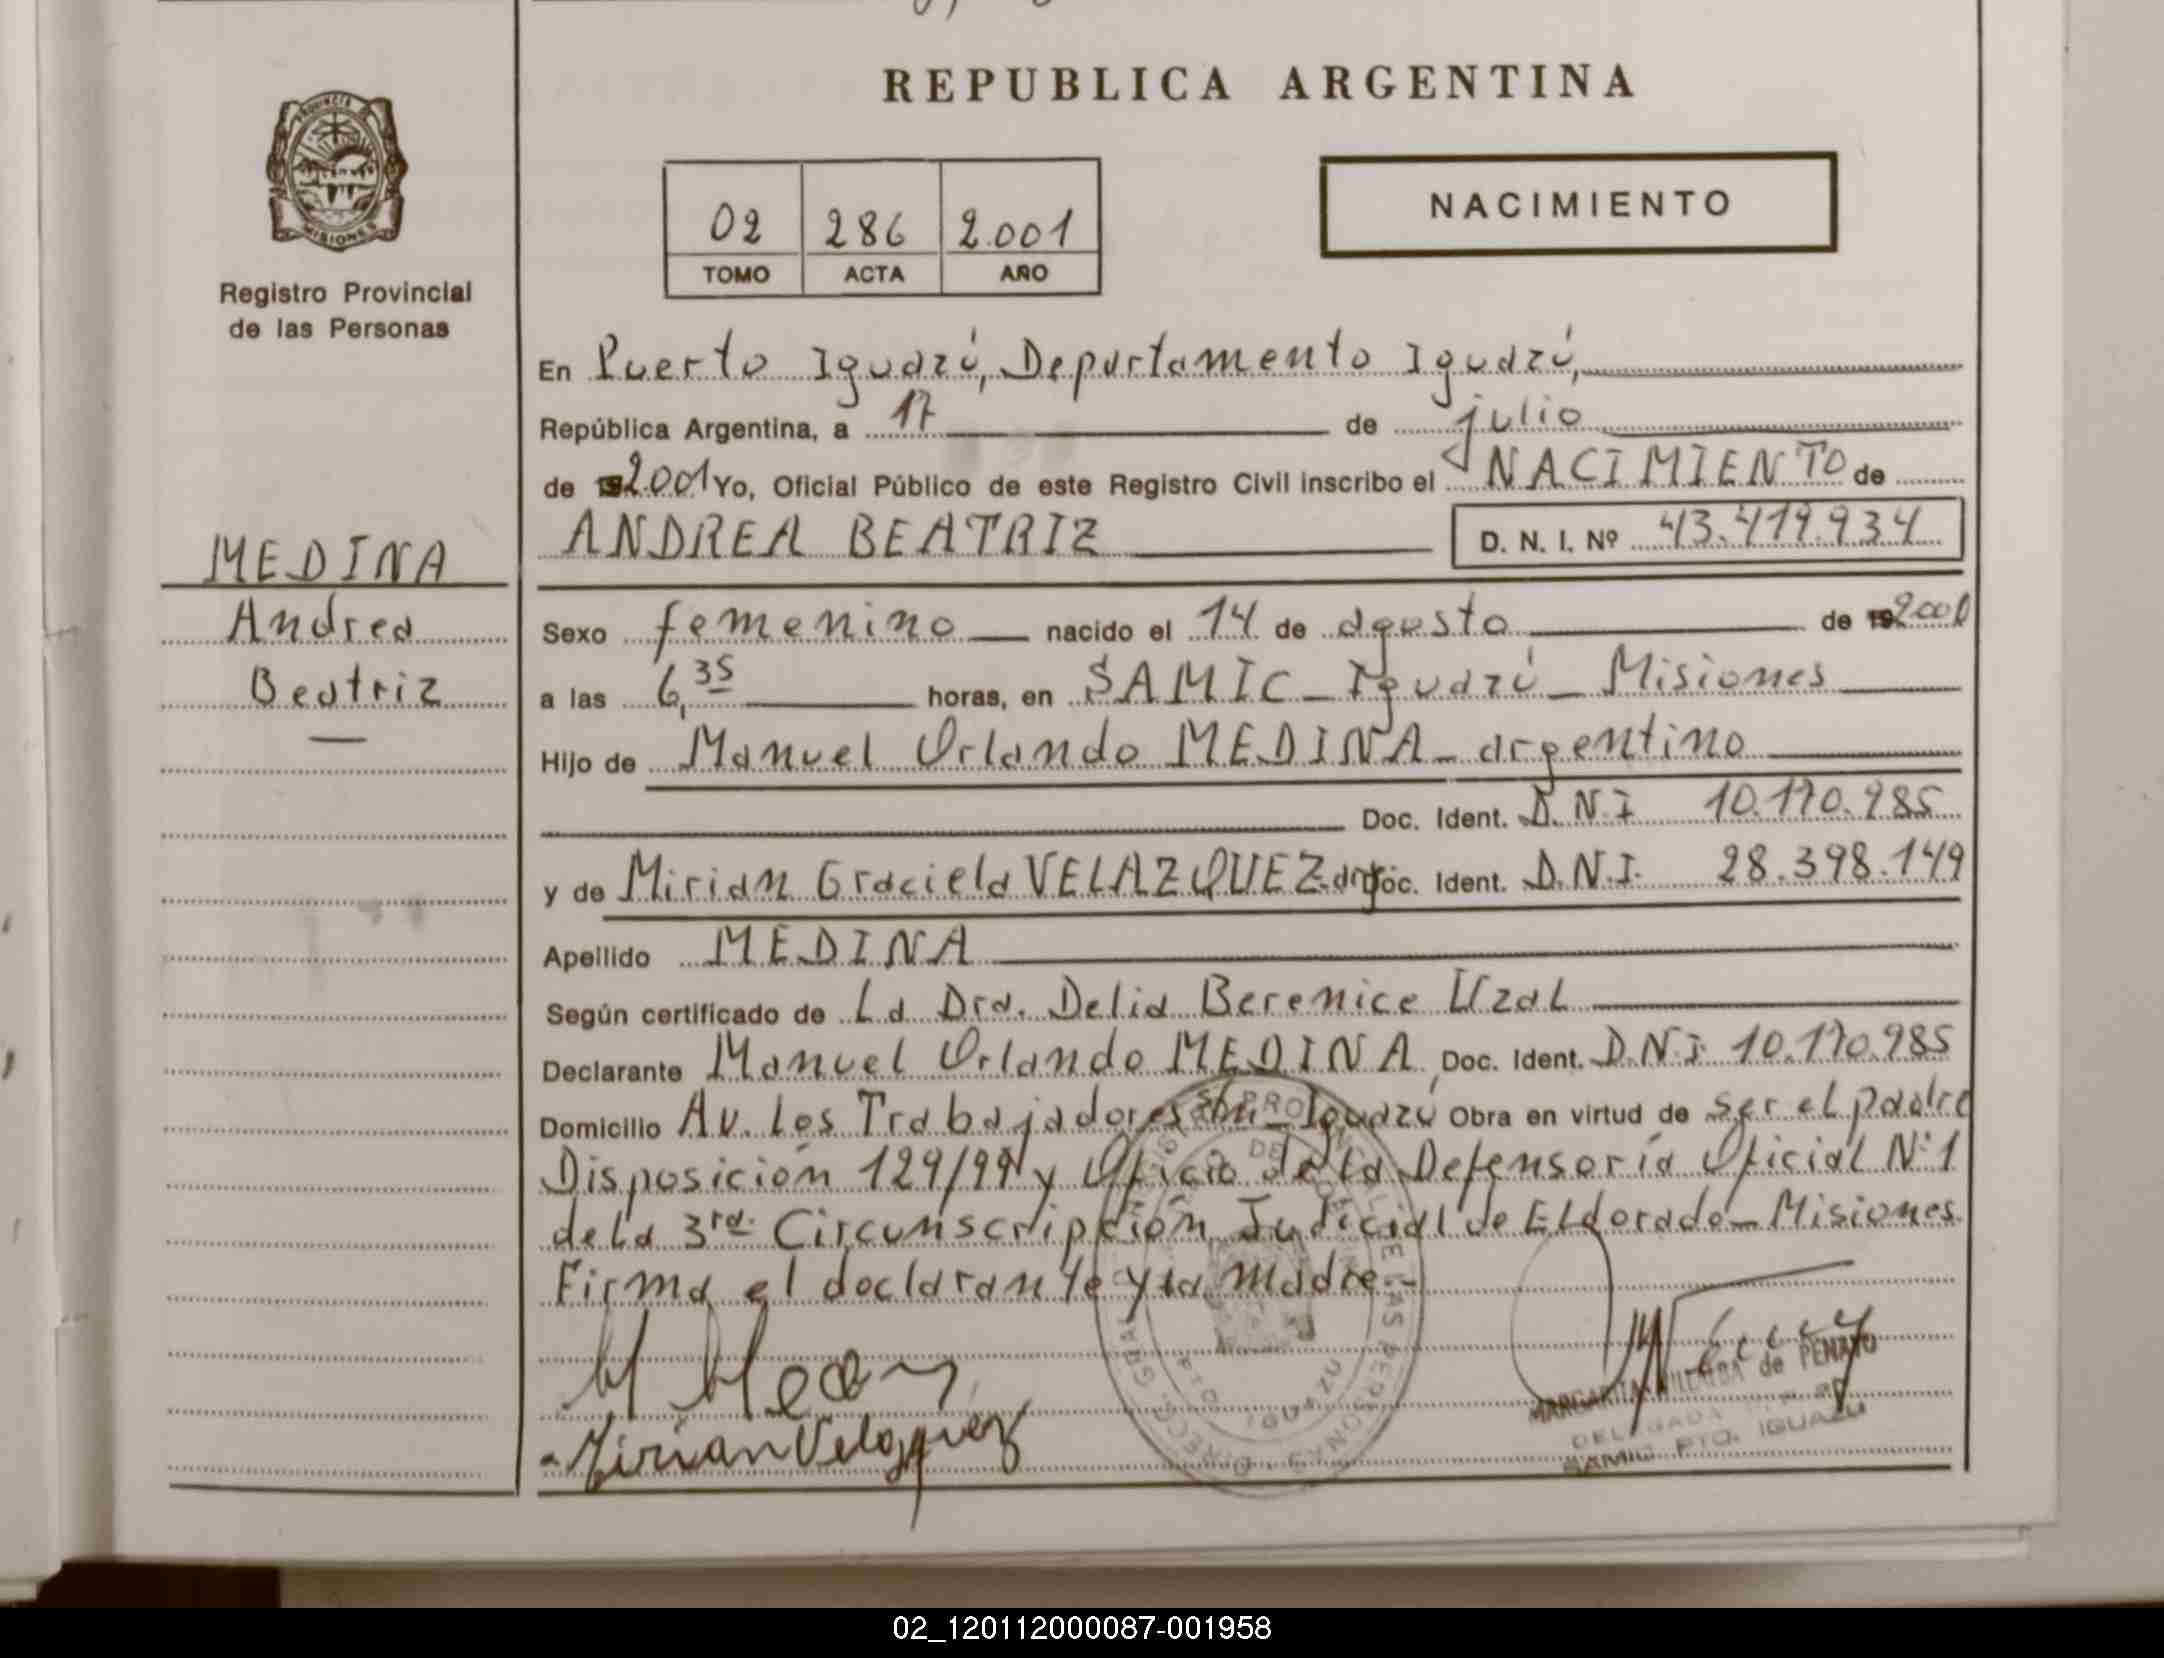 REPUBLICA ARGENTINA
PROVINCIA DE
MISIONES
Registro Provincial
de las Personas
02 286 2.001
TOMO ACTA AÑO
NACIMIENTO
En Puerto Iguazú, Departamento Iguazú,
República Argentina, a 17 de julio
de 192001 Yo, Oficial Público de este Registro Civil inscribo el NACIMIENTO de
ANDREA BEATRIZ D. N. I. Nº 43.419.934
MEDINA
Andrea
Beatriz
Sexo femenino nacido el 14 de agosto de 192000
a las 6,35 horas, en SAMIC - Iguazú - Misiones
Hijo de Manuel Orlando MEDINA - argentino
Doc. Ident. D.N.I 10.170.985
y de Mirian Graciela VELAZQUEZ - arg Doc. Ident. D.N.I. 28.398.149
Apellido MEDINA
Según certificado de La Dra. Delia Berenice Uzal
Declarante Manuel Orlando MEDINA, Doc. Ident. D.N.I 10.170.985
Domicilio Av. Los Trabajadores s/n - Iguazú Obra en virtud de ser el padre
Disposición 129/99 y Oficio de la Defensoría Oficial Nº 1
de la 3ra. Circunscripción Judicial de Eldorado - Misiones
Firma el declarante y la madre.-
Mirian Velazquez
MARGARITA VILLALBA de PENAYO
DELEGADA
SAMIC PTO. IGUAZU
02_120112000087-001958